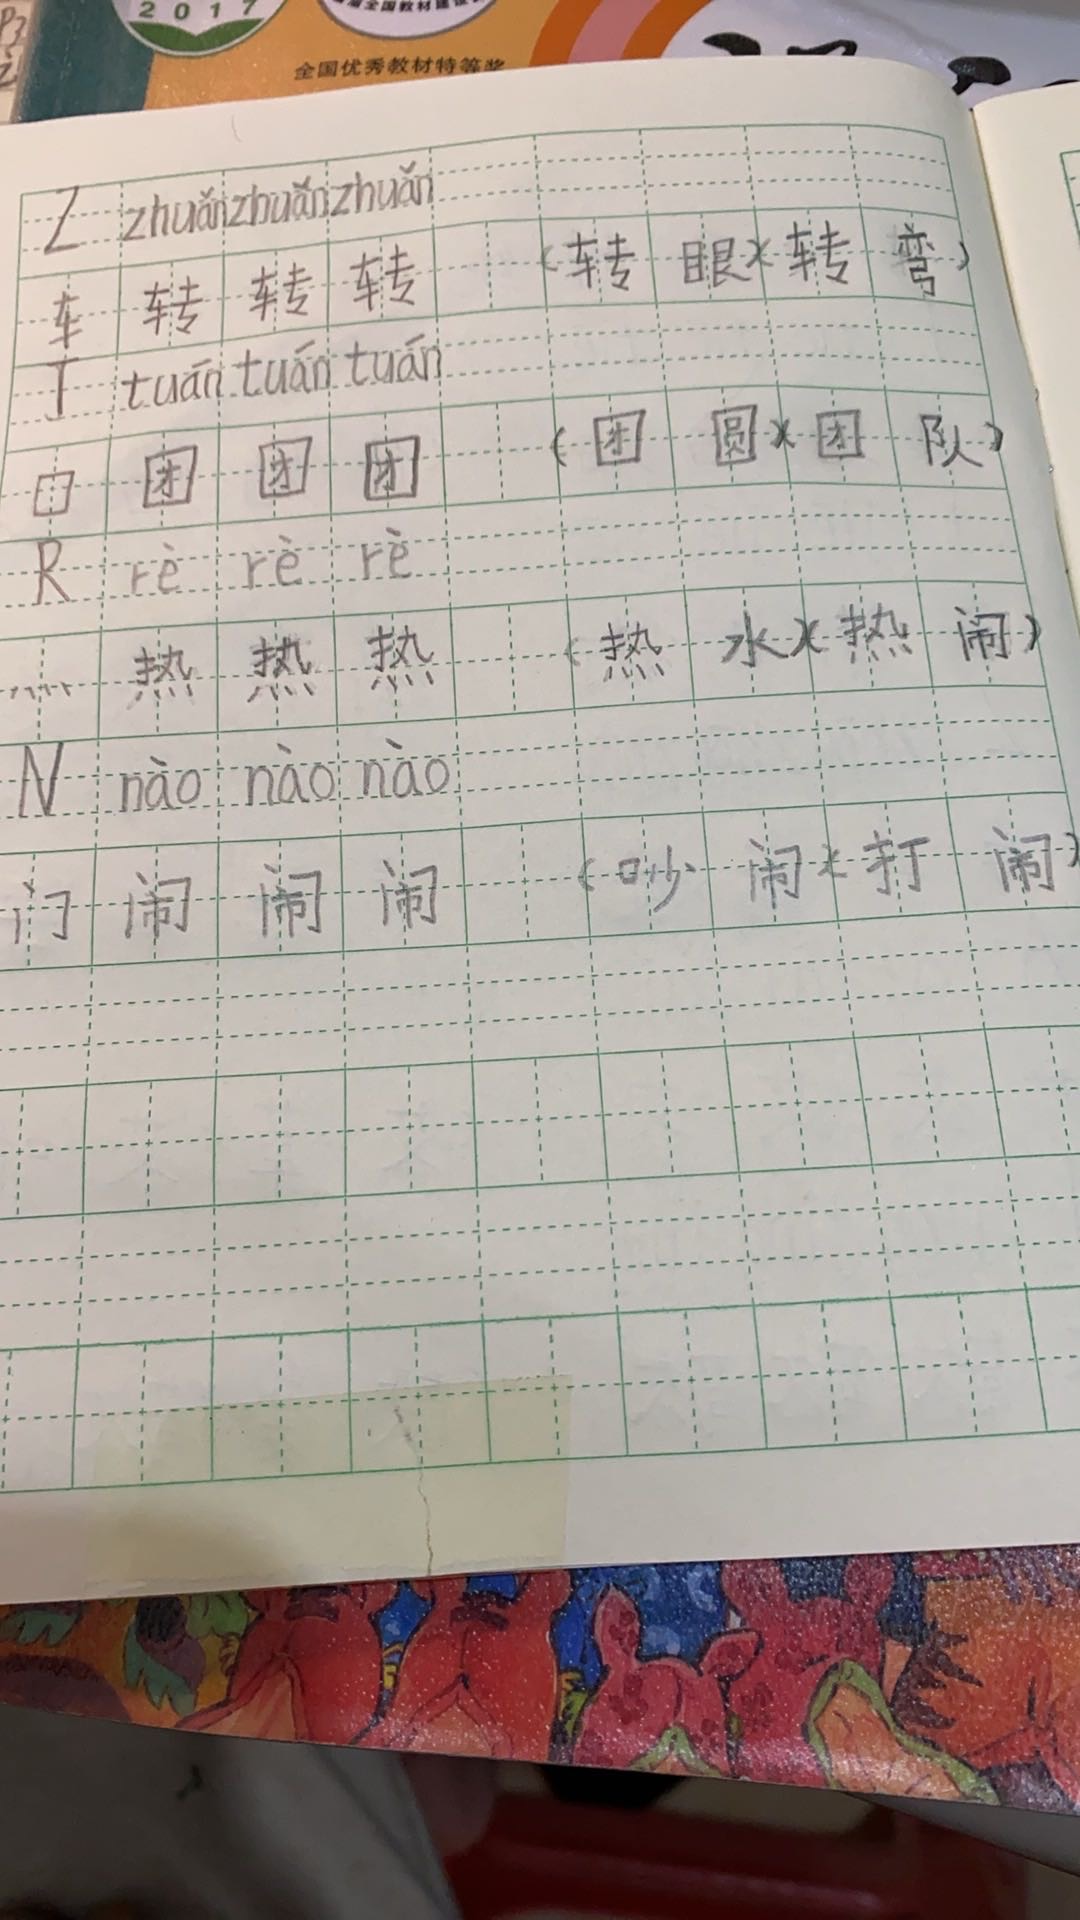 2017
全国优秀教材特等奖
Z zhuǎn zhuǎn zhuǎn
车 转 转 转 (转 眼)(转 弯)
T tuán tuán tuán
囗 团 团 团 (团 圆)(团 队)
R rè rè rè
灬 热 热 热 (热 水)(热 闹)
N nào nào nào
门 闹 闹 闹 (吵 闹)(打 闹)